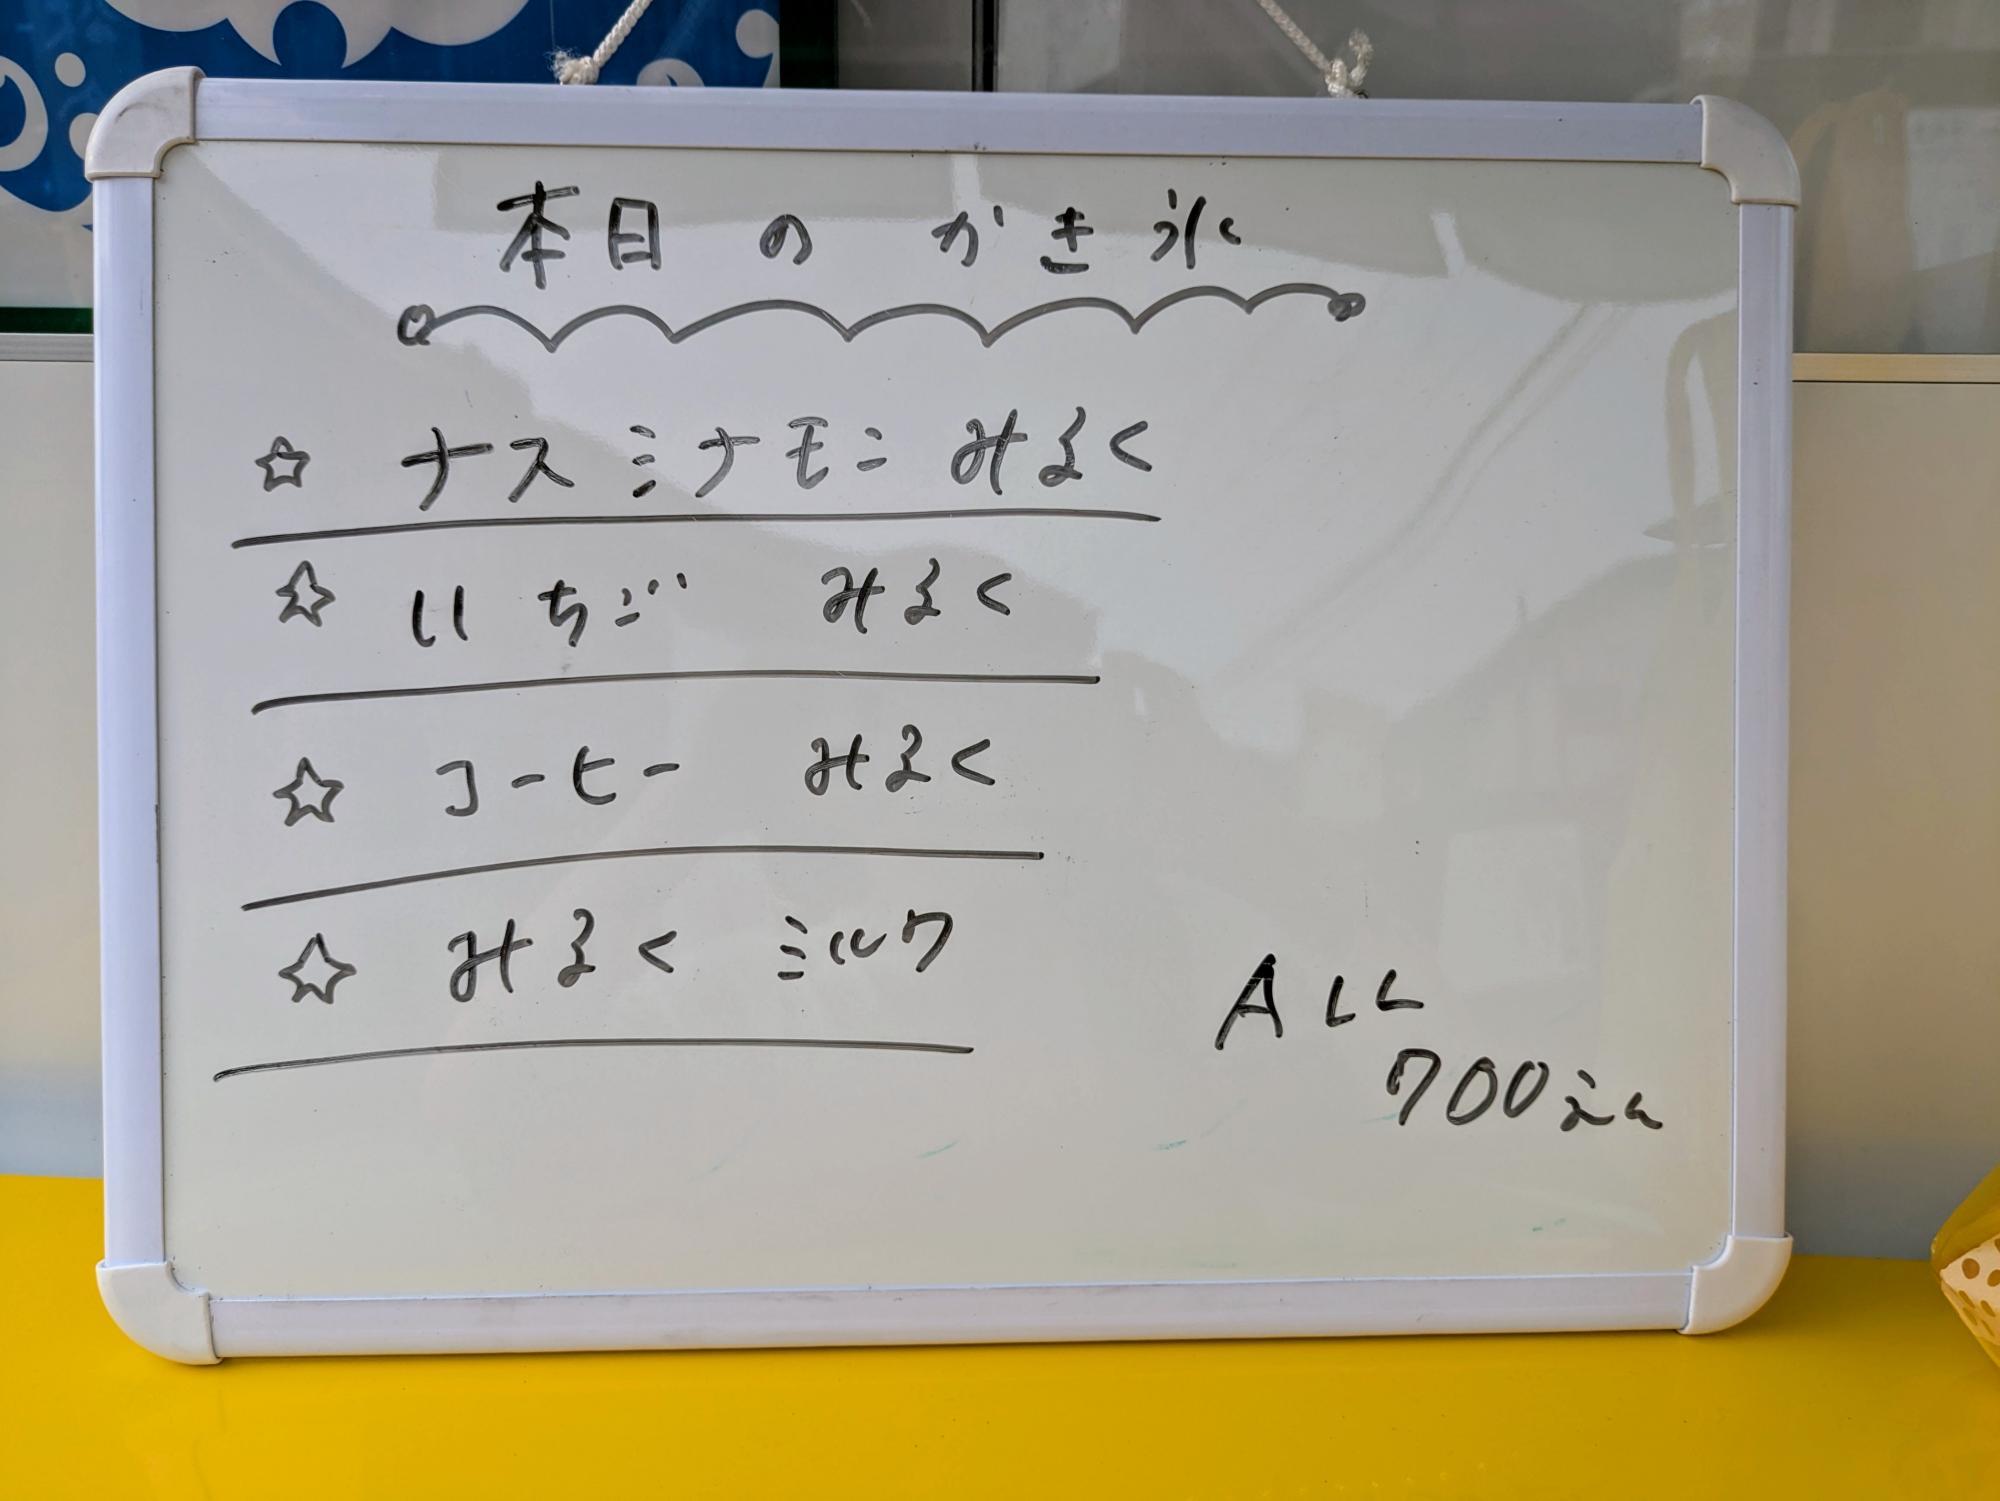 本日のかき氷
☆ ナスミナモニみるく
☆ いちご みるく
☆ コーヒー みるく
☆ みるく ミルク
ALL
700えん